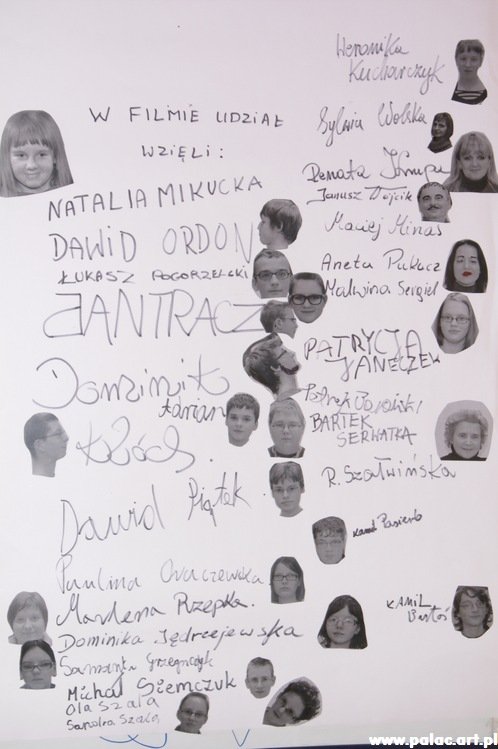 W FILMIE UDZIAŁ
WZIĘLI:
NATALIA MIKUCKA
DAWID ORDON
ŁUKASZ POGORZELSKI
JANTRACZ
Dominik
Adrian
Dawid Piątek
Paulina
Marlena Rzepka.
Dominika Jędrzejewska
Samanta Grzegorczyk
Michał Siemczuk
Ola Szala
Sandra Szala
Weronika
Kucharczyk
Sylwia Wolska
Renata Krupa
Janusz Wójcik
Maciej Minas
Aneta Pukacz
Malwina Sergiel
PATRYCJA
JANECZEK
Patryk
BARTEK
SERWATKA
R. Szałwińska
Kamil Pasienb
KAMIL
Bartoś
www.palac.art.pl